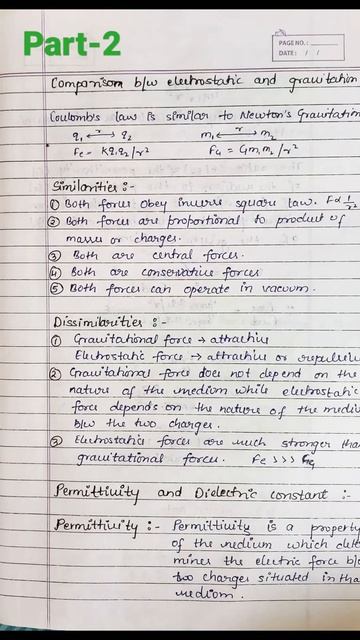 Part-2
PAGE NO.:
DATE: / /
Comparison b/w electrostatic and gravitation
Coulomb's law is similar to Newton's Gravitation
q₁ ←r→ q₂ m₁ ←r→ m₂
Fe = Kq₁q₂/r² FG = Gm₁m₂/r²
Similarities :-
① Both forces obey inverse square law. F∝ 1/r²
② Both forces are proportional to product of
masses or charges.
③ Both are central forces.
④ Both are conservative forces
⑤ Both forces can operate in vacuum.
Dissimilarities :-
① Gravitational force → attractive
Electrostatic force → attractive or repulsive
② Gravitational force does not depend on the
nature of the medium while electrostatic
force depends on the nature of the medi
b/w the two charges.
③ Electrostatic forces are much stronger tha
gravitational forces. Fe >>> FG
Permittivity and Dielectric constant :-
Permittivity :- Permittivity is a property
of the medium which dete
mines the electric force b/
two charges situated in tha
medium.